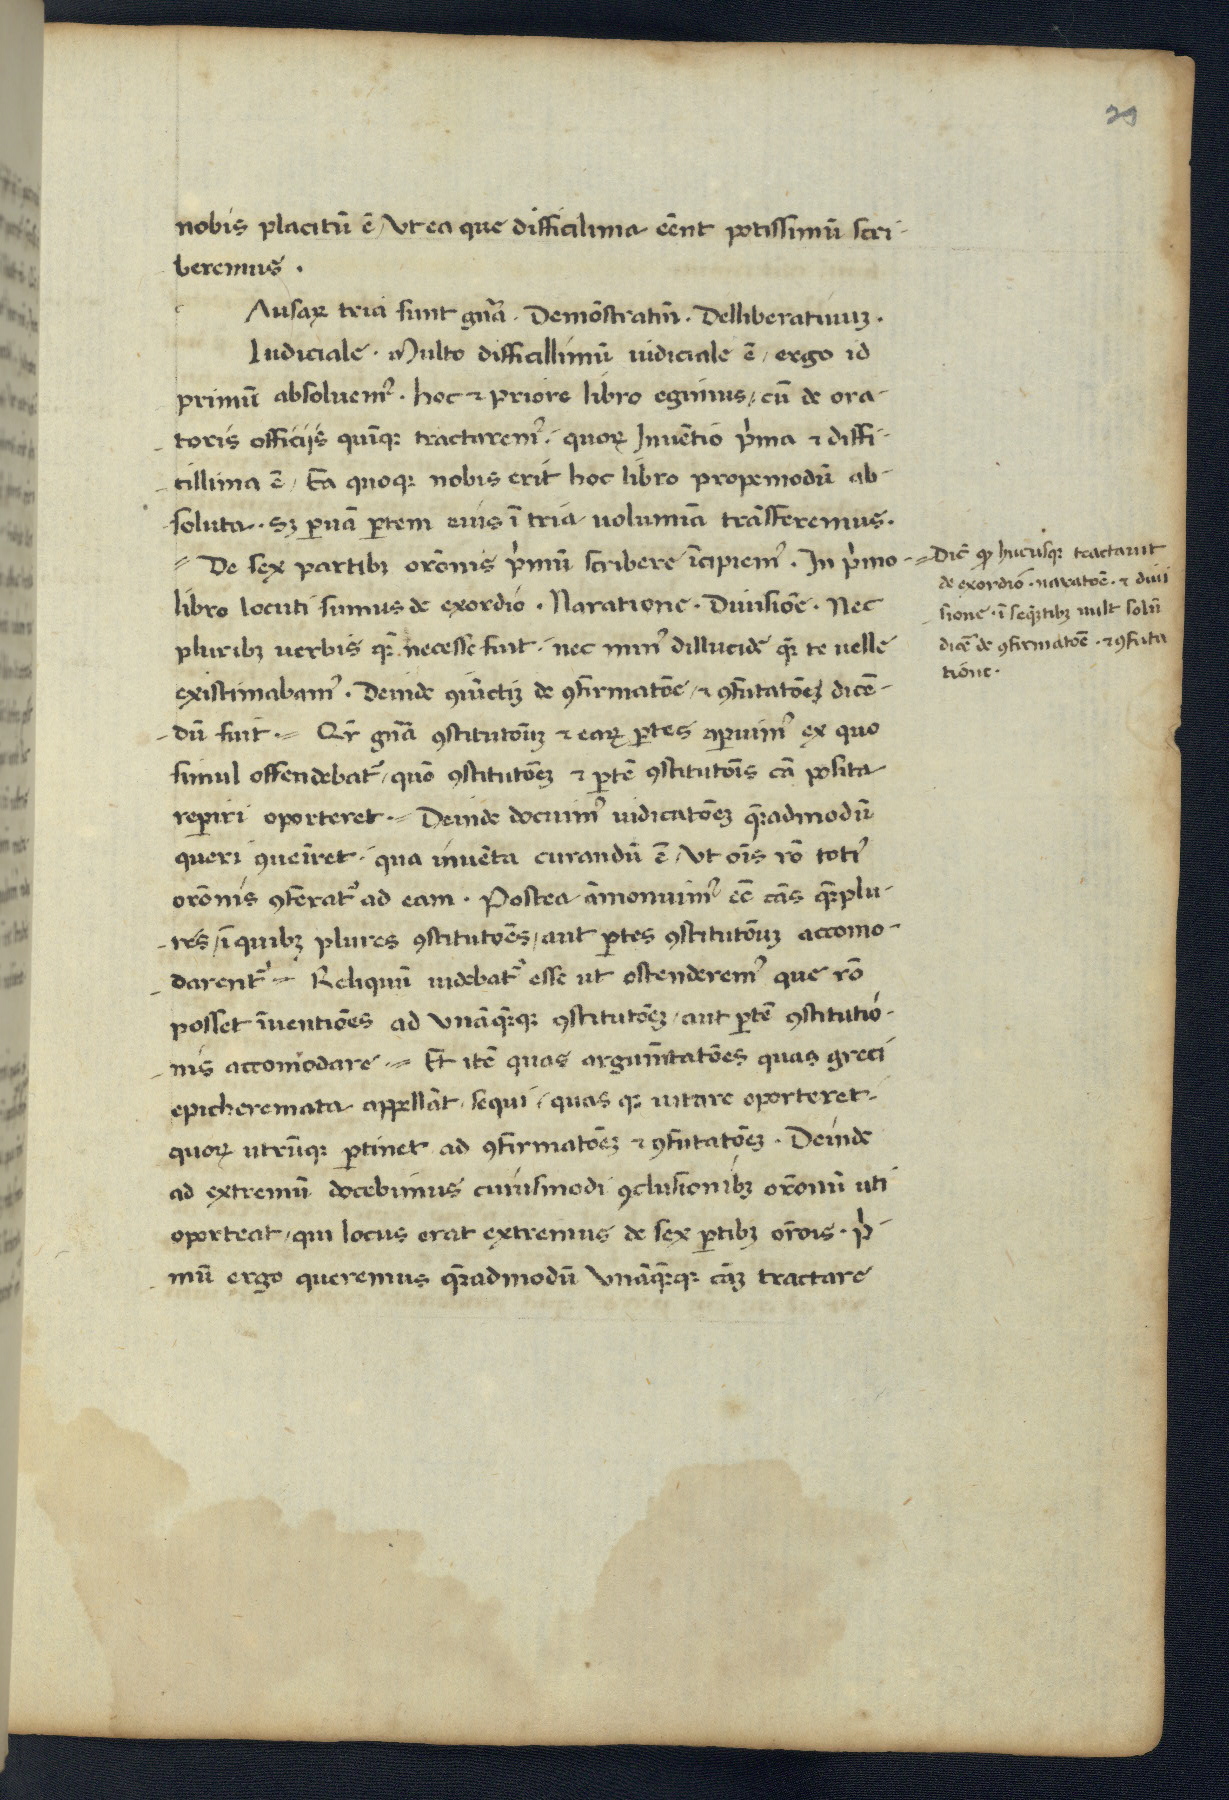 29
nobis placitū ē / Vt ea que difficilima eēnt potissimū scri-
beremus .
Ausaꝝ tria sunt gn̄a . Demōstratiū . Delliberatiuuꝫ .
Iudiciale . Multo difficillimū iudiciale ē / ergo id
primū absoluemꝰ . hoc ⁊ priore libro egimus / cū de ora-
toris officijs quinqꝫ tractaremꝰ . quoꝝ Inuētio pͥma ⁊ diffi-
cillima ē / Ea quoqꝫ nobis erit hoc libro propemodū ab-
soluta . Sꝫ ꝑuā ꝑtem eius ī tria uolumīa trāsferemus .
De sex partibꝫ orōnis pͥmū scribere īcipiemꝰ . In pͥmo
libro locuti sumus de exordio . Naratione . Diuisiōe . Nec
pluribꝫ uerbis qꝫ necesse fuit . nec minꝰ dillucide qꝫ te uelle
existimabamꝰ . Deinde ꝯiūctiꝫ de ꝯfirmatōe / ⁊ ꝯfutatōeꝫ dicē-
dū fuit . Qr̄ gn̄a ꝯstitutōuꝫ ⁊ eaꝝ ꝑtes aꝑuimꝰ ex quo
simul ostendebatᷣ / quō ꝯstitutōeꝫ ⁊ ꝑtē ꝯstitutōis cā posita
reꝑiri oporteret . Deinde docuimꝰ iudicatōeꝫ qꝫadmodū
queri ꝯueīret . qua inuēta curandū ē / Vt oīs rō totiꝰ
orōnis ꝯferatᷣ ad eam . Postea āmonuimꝰ eē cās qꝫplu-
res / ī quibꝫ plures ꝯstitutōes / aut ꝑtes ꝯstitutōuꝫ accomo-
darentᷣ . Reliquū uidebatᷣ esse ut ostenderemꝰ que rō
posset īuentiōes ad Vnāqꝫqꝫ ꝯstitutōeꝫ / aut ꝑtē ꝯstitutio-
nis accomodare . Et itē quas argum̄tatōes quas greci
epicheremata appellāt . sequi / quas qꝫ uitare oporteret .
quoꝝ utrūqꝫ ꝑtinet ad ꝯfirmatōeꝫ ⁊ ꝯfutatōeꝫ . Deinde
ad extremū docebimus cuiusmodi ꝯclusionibꝫ orōnū uti
oporteat / qui locus erat extremus de sex ꝑtibꝫ orōis . pͥ-
mū ergo queremus qꝫadmodū Vnāqꝫqꝫ cāꝫ tractare
Dic̄ ꝙ hucusqꝫ tractauit
de exordio . naratōe . ⁊ diui
sione . ī seqꝫtibꝫ uult solū
dicē de ꝯfirmatōe . ⁊ ꝯfuta
tione .